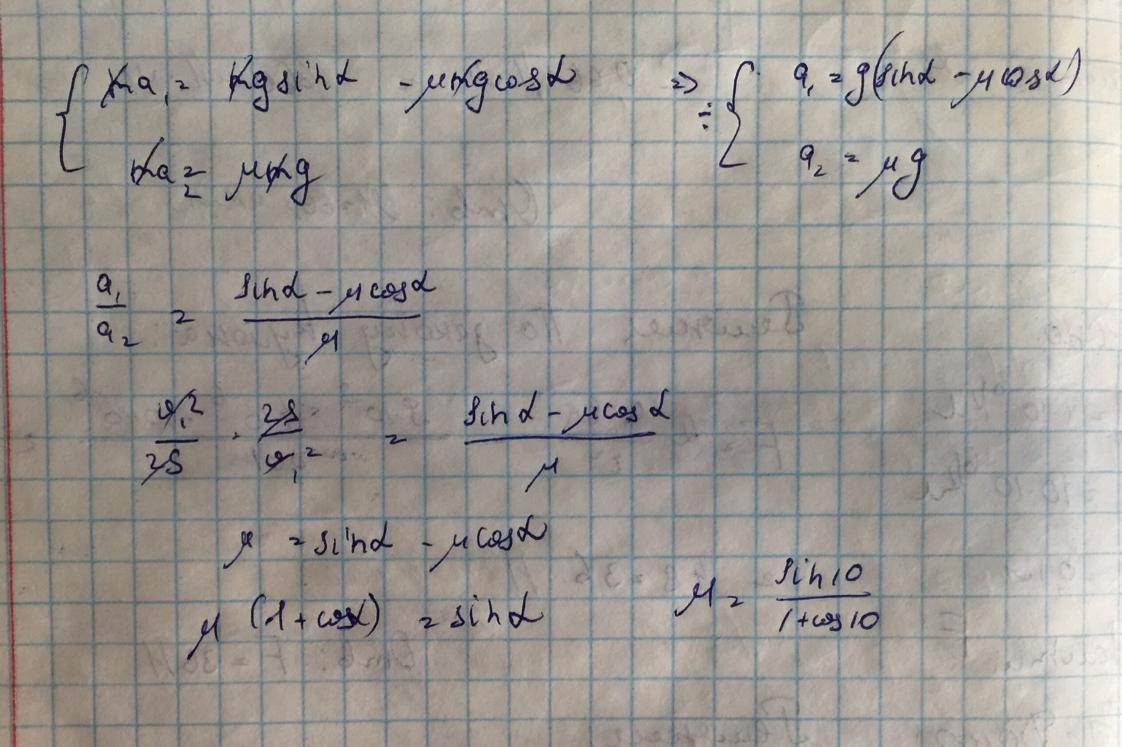 { ma₁ = mg sinα - μmg cosα ⇒ ÷ { a₁ = g(sinα - μ cosα)
ma₂ = μmg a₂ = μg
a₁/a₂ = (sinα - μ cosα)/μ
υ₁²/2S · 2S/υ₁² = (sinα - μ cosα)/μ
μ = sinα - μ cosα
μ (1 + cosα) = sinα μ = sin10/(1 + cos10)